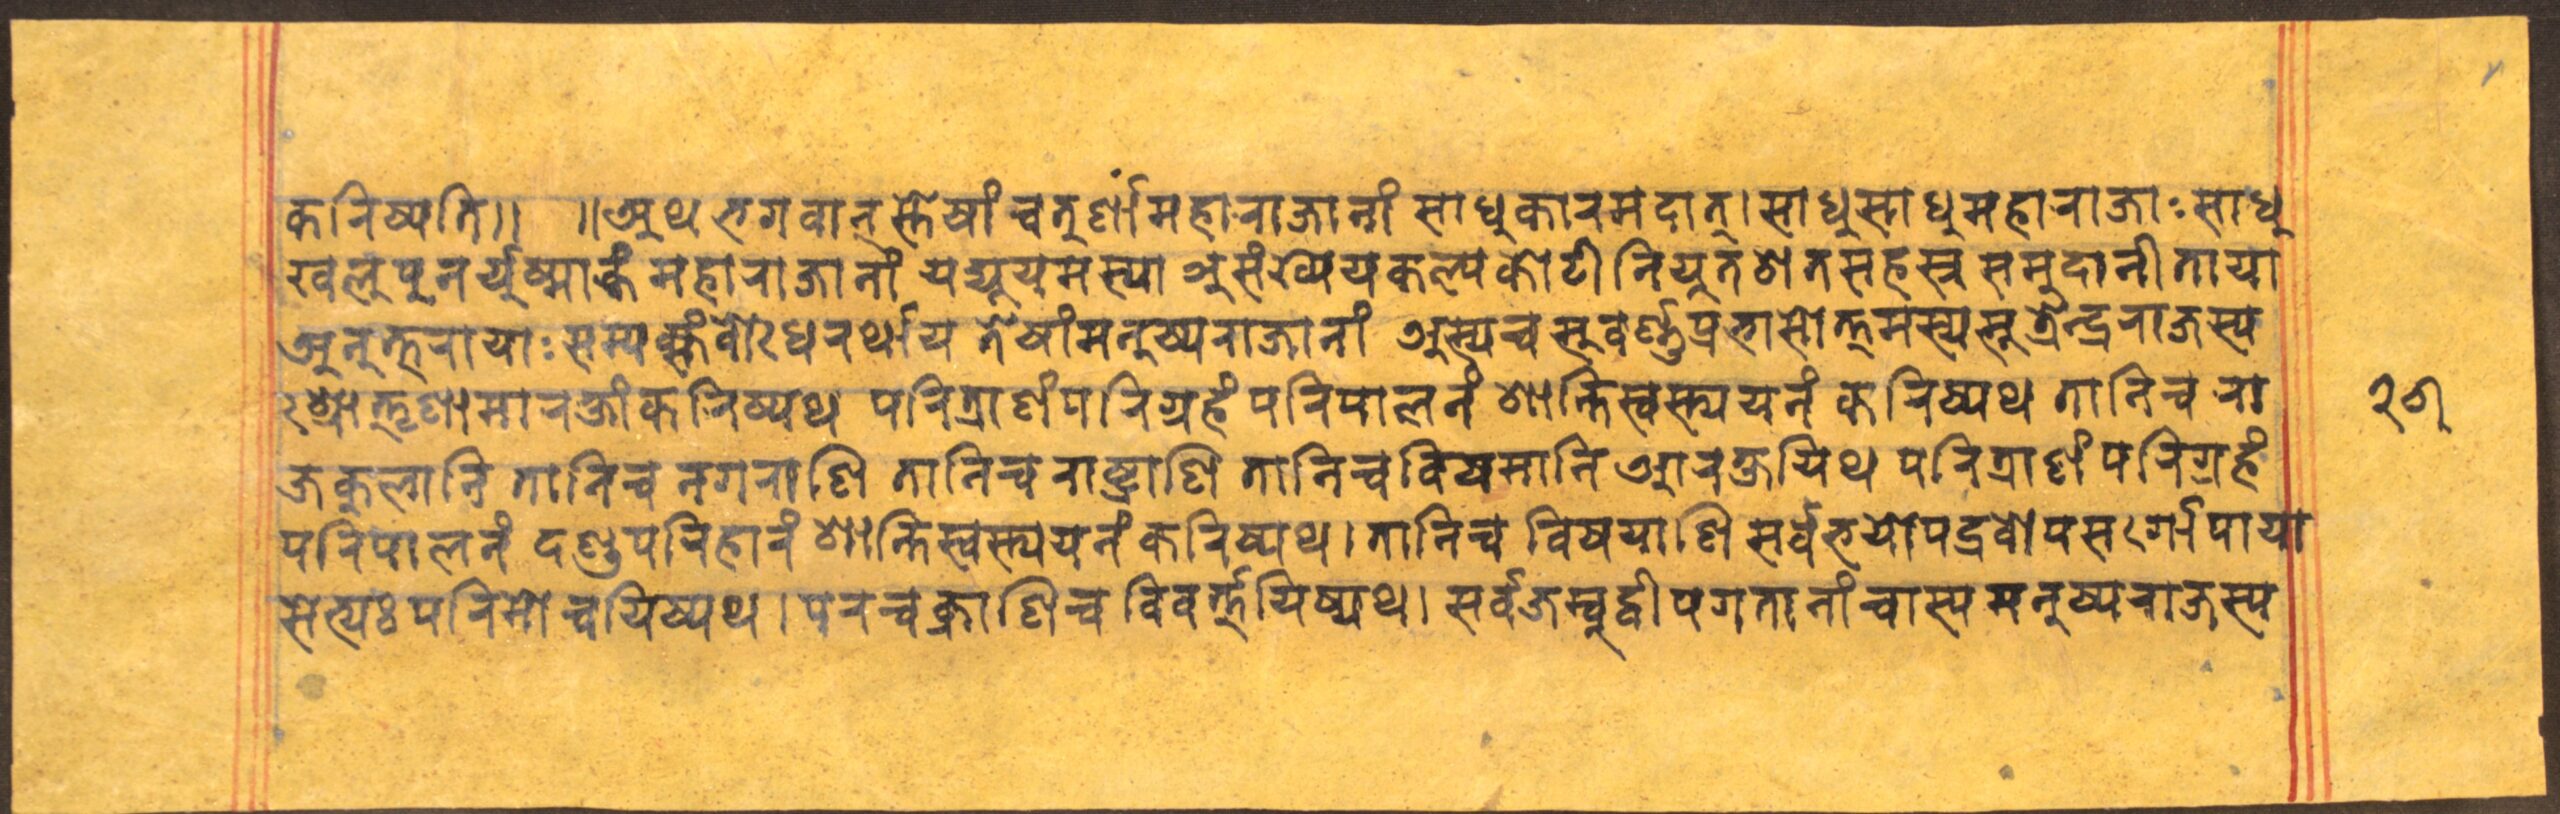 करिष्यति॥ ॥अथ भगवान् स्तेषां चतुर्णां महाराजानां साधुकारमदात्। साधु साधु महाराजाः साधु
खलु पुनर्युष्माकं महाराजानां यद्यूयमस्या असंख्येयकल्पकोटीनियुतशतसहस्रसमुदानीताया
अनुत्तरायाः सम्यक्संबोधेरर्थाय तेषां मनुष्यराजानां अस्य च सुवर्ण्णप्रभासोत्तमस्य सूत्रेन्द्रराजस्य
श्रोतृणामारक्षां करिष्यथ परित्राणं परिग्रहं परिपालनं शान्तिस्वस्त्ययनं करिष्यथ तानि च रा
जकुलानि तानि च नगराणि तानि च राष्ट्राणि तानि च विषमानि आरक्षयिथ परित्राणं परिग्रहं
परिपालनं दण्डपरिहारं शान्तिस्वस्त्ययनं करिष्यथ। तानि च विषयाणि सर्वभयोपद्रवोपसर्गोपाया
सेभ्यः परिमोचयिष्यथ। परचक्राणि च विवर्त्तयिष्यथ। सर्वजम्बुद्वीपगतानां चास्य मनुष्यराजस्य
२७